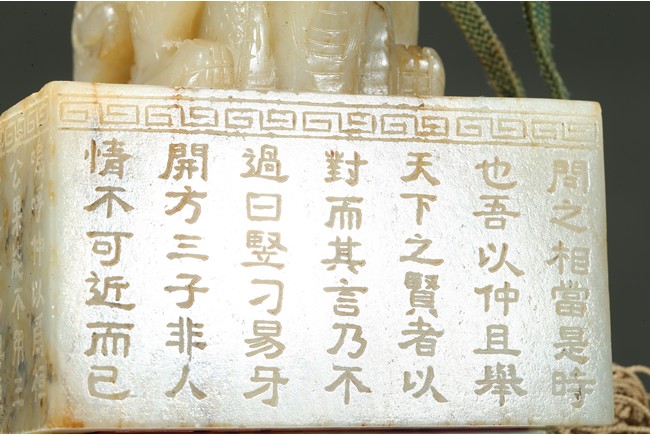 問之相當是時
也吾以仲且舉
天下之賢者以
對而其言乃不
過曰豎刁易牙
開方三子非人
情不可近而已